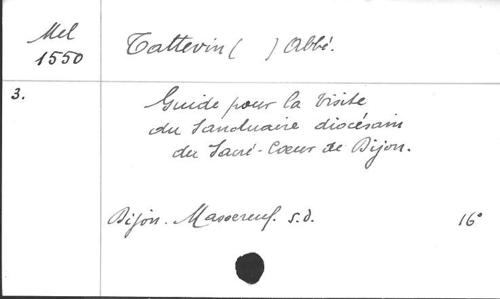 Mel
1550
Tattevin ( ) Abbé.
3.
Guide pour la Visite
du Sanctuaire diocésain
du Sacré-Coeur de Dijon.
Dijon. s.d. 16°